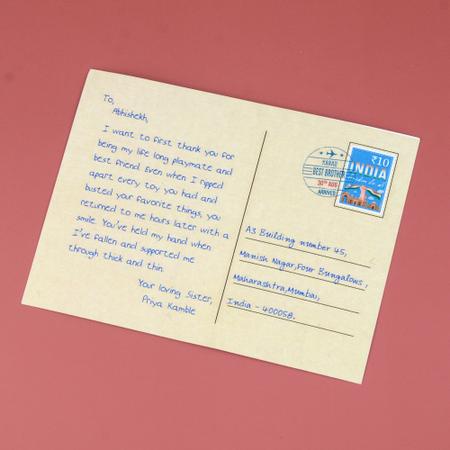 To,
Abhishekh,
I want to first thank you for
being my life long playmate and
best friend. Even when I ripped
apart every toy you had and
busted your favorite things, you
returned to me hours later with a
smile. You've held my hand when
I've fallen and supported me
through thick and thin.
Your loving Sister,
Priya Kamble
BEST BROTHER
30TH AUG
₹10
INDIA
A3 Building number 45,
Manish Nagar, Four Bungalows,
Maharashtra, Mumbai,
India - 400058.